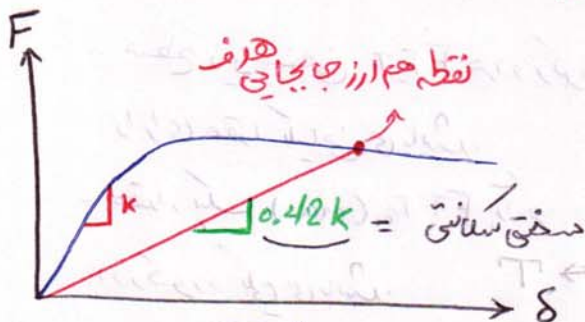 F
نقطه هم ارز جابجایی هدف
k
0.42k = سختی سکانتی
δ